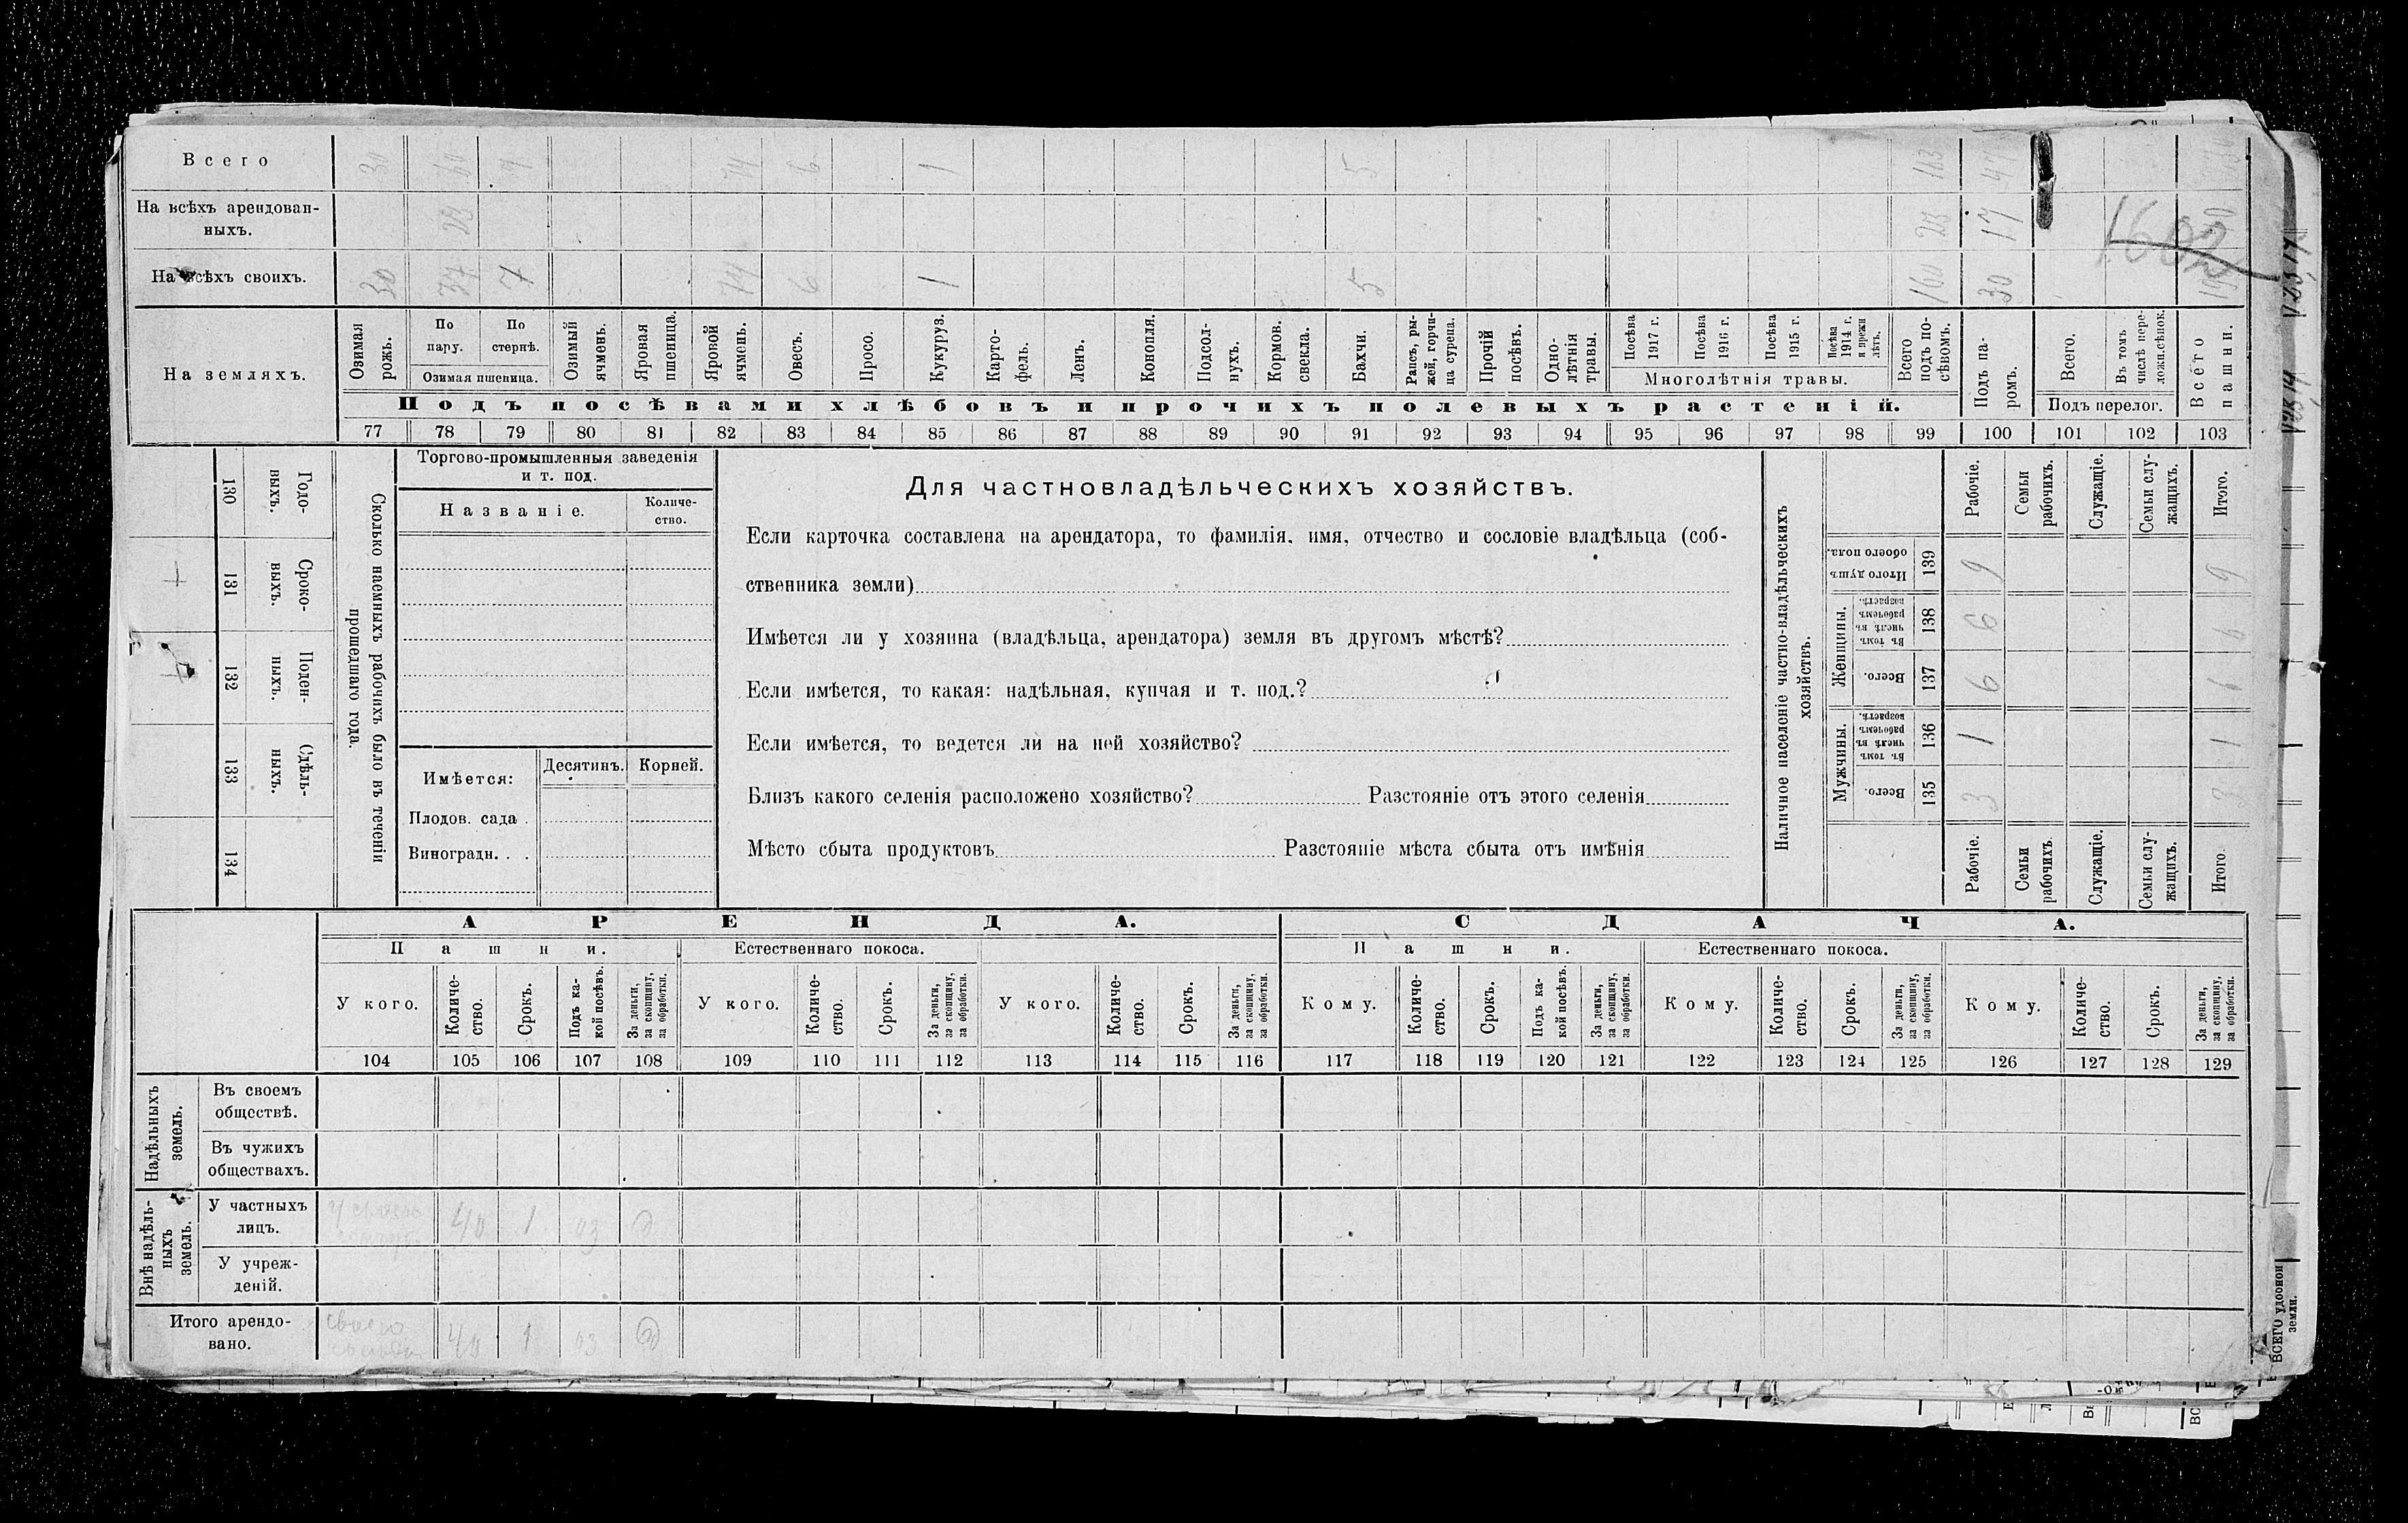 Всего 30 60 7 74 6 1 5 183 47
На всѣхъ арендован-
ныхъ. 23 23 17
На всѣхъ своихъ. 30 37 7 74 6 1 5 160 30
1602
На земляхъ.
Озимая рожь.
По пару.
По стернѣ.
Озимая пшеница.
Озимый ячмень.
Яровая пшеница.
Яровой ячмень.
Овесъ.
Просо.
Кукуруз.
Карто-
фель.
Ленъ.
Конопля.
Подсол-
нухъ.
Кормов. свекла.
Бахчи.
Рапсъ, ры-
жей, горчи-
ца сурепа.
Прочій посѣвъ.
Одно-
лѣтнія травы.
Посѣва 1917 г.
Посѣва 1916 г.
Посѣва 1915 г.
Посѣва 1914 г. и прежн лѣтъ.
Многолѣтнія травы.
Всего подъ по-
сѣвомъ.
Подъ па-
ромъ.
Всего.
Въ томъ числѣ пере-
ложн.сѣнок.
Подъ перелог.
Всего пашни.
Подъ посѣвами хлѣбовъ и прочихъ полевыхъ растеній.
77 78 79 80 81 82 83 84 85 86 87 88 89 90 91 92 93 94 95 96 97 98 99 100 101 102 103
Годо-
выхъ.
130
Сроко-
выхъ.
131
Поден-
ныхъ.
132
Сдѣль-
ныхъ.
133
134
Сколько наемныхъ рабочихъ было въ теченіи
прошедшаго года.
Торгово-промышленныя заведенія
и т. под.
Названіе.
Количе-
ство.
Имѣется:
Десятинъ.
Корней.
Плодов. сада .
Виноградн. . .
Для частновладѣльческихъ хозяйствъ.
Если карточка составлена на арендатора, то фамилія, имя, отчество и сословіе владѣльца (соб-
ственника земли)
Имѣется ли у хозяина (владѣльца, арендатора) земля въ другомъ мѣстѣ?
Если имѣется, то какая: надѣльная, купчая и т. под.?
Если имѣется, то ведется ли на ней хозяйство?
Близъ какого селенія расположено хозяйство? Разстояніе отъ этого селенія
Мѣсто сбыта продуктовъ Разстояніе мѣста сбыта отъ имѣнія
Наличное населеніе частно-владѣльческихъ
хозяйствъ.
Рабочіе.
Семьи рабочихъ.
Служащіе.
Семьи слу-
жащихъ.
Итого.
Итого душъ обоего пола.
139
9 9
Женщины.
Въ томъ числѣ въ рабочемъ возрастѣ.
138
6 6
Всего.
137
6 6
Мужчины.
Въ томъ числѣ въ рабочемъ возрастѣ.
136
1 1
Всего.
135
3 3
Рабочіе.
Семьи рабочихъ.
Служащіе.
Семьи слу-
жащихъ.
Итого.
АРЕНДА. СДАЧА.
Пашни. Естественнаго покоса. Пашни. Естественнаго покоса.
У кого.
Количе-
ство.
Срокъ.
Подъ ка-
кой посѣвъ.
За деньги, за скопщину, за обработки.
У кого.
Количе-
ство.
Срокъ.
За деньги, за скопщину, за обработки.
У кого.
Количе-
ство.
Срокъ.
За деньги, за скопщину, за обработки.
Кому.
Количе-
ство.
Срокъ.
Подъ ка-
кой посѣвъ.
За деньги, за скопщину, за обработки.
Кому.
Количе-
ство.
Срокъ.
За деньги, за скопщину, за обработки.
Кому.
Количе-
ство.
Срокъ.
За деньги, за скопщину, за обработки.
104 105 106 107 108 109 110 111 112 113 114 115 116 117 118 119 120 121 122 123 124 125 126 127 128 129
Надѣльныхъ земель.
Въ своемъ
обществѣ.
Въ чужихъ
обществахъ.
Внѣ надѣль-
ныхъ земель.
У частныхъ
лицъ. 40 1 оз
У учреж-
деній.
Итого арендо-
вано. 40 1 оз
ВСЕГО удобной
земли.